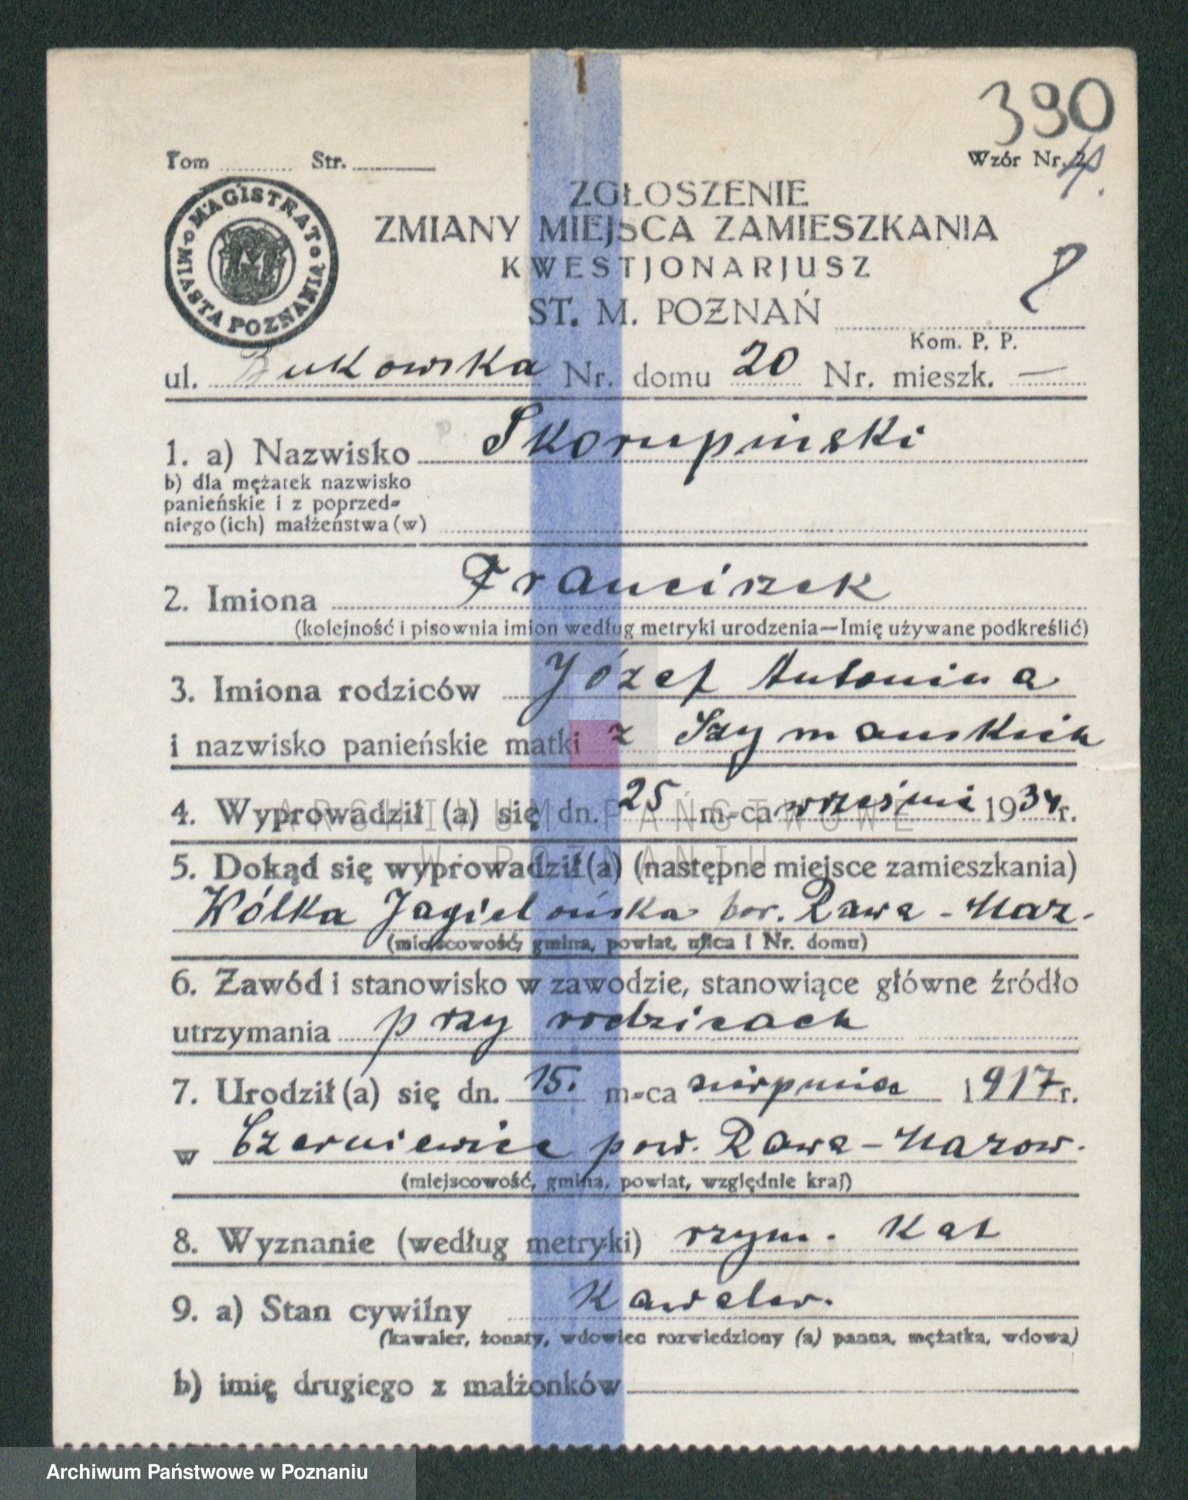 390
Tom ........... Str. ............
Wzór Nr. 4.
MAGISTRAT MIASTA POZNANIA
ZGŁOSZENIE
ZMIANY MIEJSCA ZAMIESZKANIA
KWESTJONARJUSZ
ST. M. POZNAŃ
Kom. P. P.
ul. Bukowska Nr. domu 20 Nr. mieszk. —
1. a) Nazwisko Skorupinski
b) dla mężatek nazwisko
panieńskie i z poprzed-
niego (ich) małżeństwa (w)
2. Imiona Franciszek
(kolejność i pisownia imion według metryki urodzenia—Imię używane podkreślić)
3. Imiona rodziców Józef Antonina
i nazwisko panieńskie matki z Szymanskich
4. Wyprowadził (a) się dn. 25 m-ca wrześnie 1934 r.
ARCHIWUM PAŃSTWOWE
W POZNANIU
5. Dokąd się wyprowadził(a) (następne miejsce zamieszkania)
Wólka Jagielońska Rawa - Maz.
(miejscowość, gmina, powiat, ulica i Nr. domu)
6. Zawód i stanowisko w zawodzie, stanowiące główne źródło
utrzymania przy rodzicach
7. Urodził (a) się dn. 15. m-ca sierpnia 1917 r.
w Czerniewice pow. Rawa - Mazow.
(miejscowość, gmina, powiat, względnie kraj)
8. Wyznanie (według metryki) rzym. kat
9. a) Stan cywilny Kawaler.
(kawaler, żonaty, wdowiec rozwiedziony (a) panna, mężatka, wdowa)
b) imię drugiego z małżonków
Archiwum Państwowe w Poznaniu